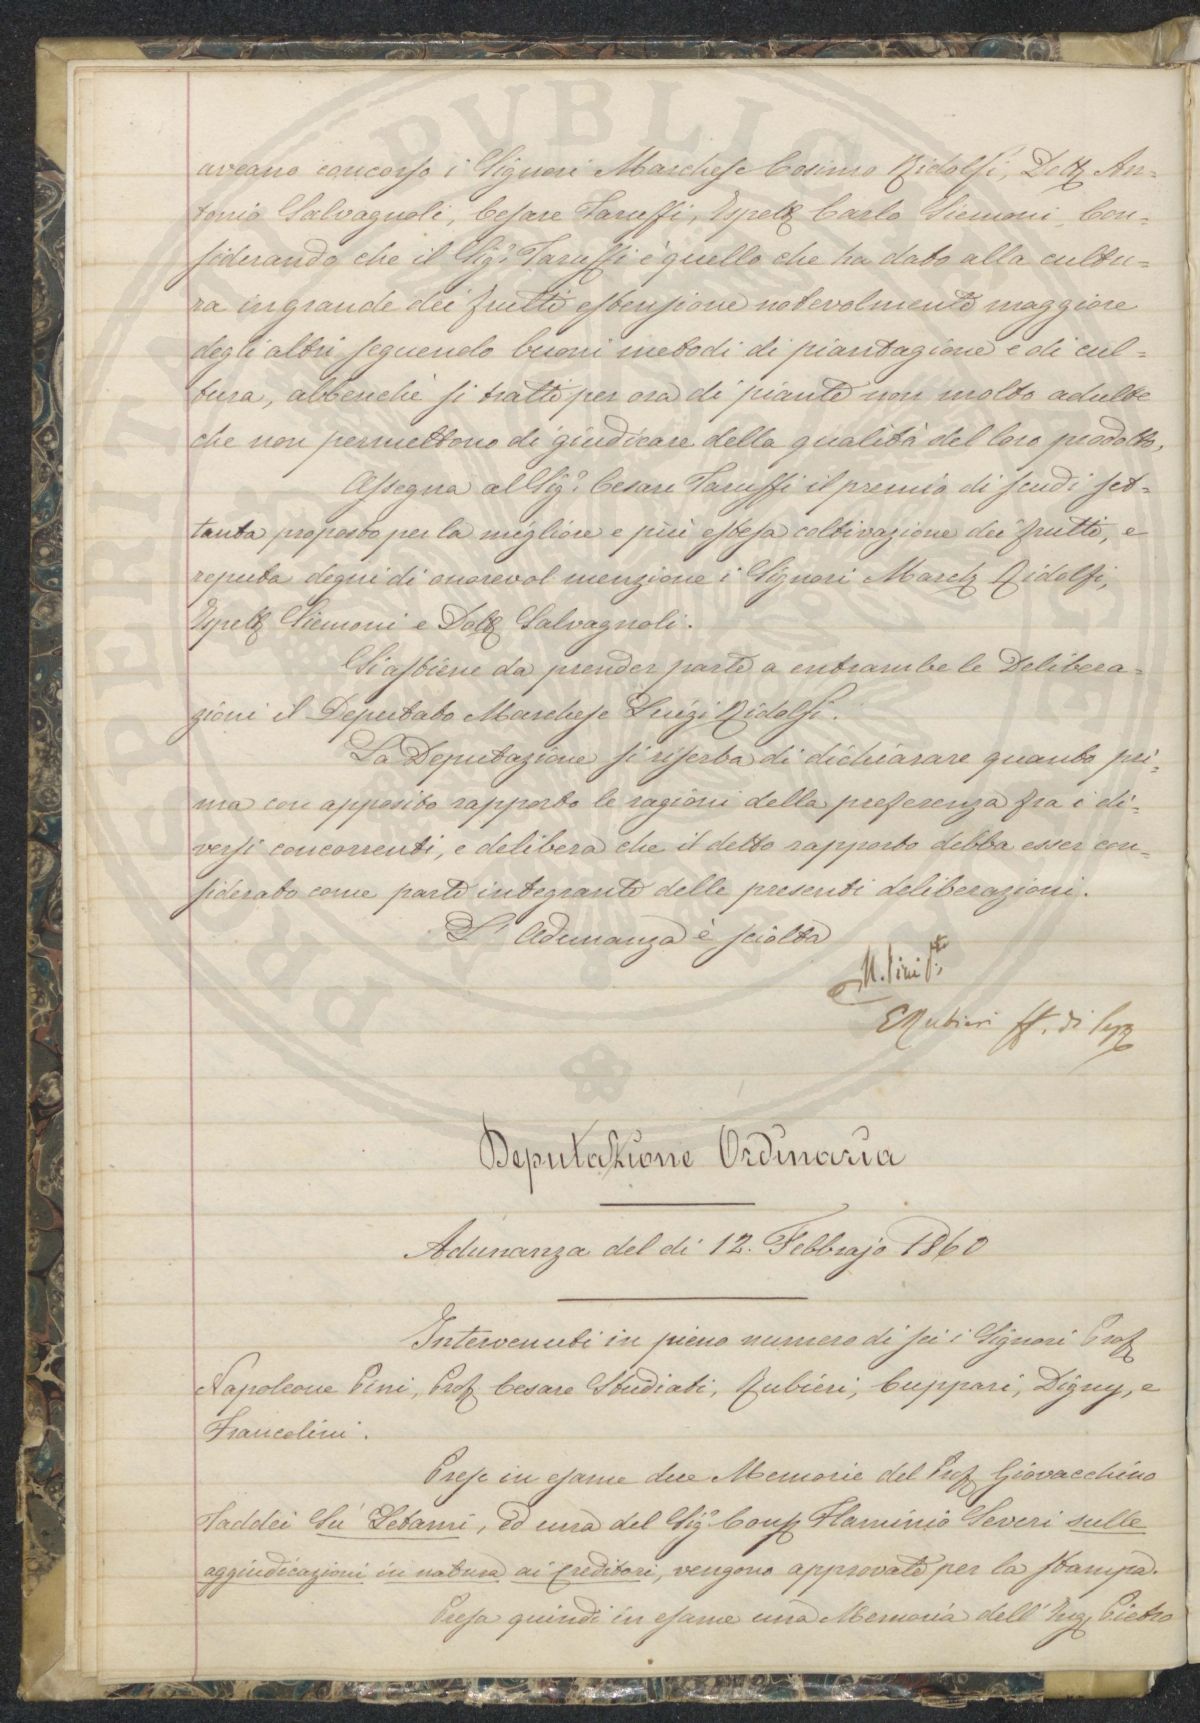 aveano concorso i Signori Marchese Cosimo Ridolfi, Dott An=
tonio Salvagnoli, Cesare Taruffi, Ispett Carlo Siemoni, Con=
siderando che il Sig.r Taruffi è quello che ha dato alla cultu=
ra in grande dei frutti estensione notevolmente maggiore
degli altri seguendo buoni metodi di piantagione e di cul=
tura, abbenchè si tratti per ora di piante non molto adulte
che non permettono di giudicare della qualità del loro prodotto,
Assegna al Sig.r Cesare Taruffi il premio di scudi set=
tanta proposto per la migliore e più estesa coltivazione dei frutti, e
reputa degni di onorevol menzione i Signori March Ridolfi,
Ispett Siemoni e Dott Salvagnoli.
Si astiene da prender parte a entrambe le Delibera=
zioni il Deputato Marchese Luigi Ridolfi.
La Deputazione si riserba di dichiarare quanto pri=
ma con apposito rapporto le ragioni della preferenza fra i di=
versi concorrenti, e delibera che il detto rapporto debba esser con=
siderato come parte integrante delle presenti deliberazioni.
L'Adunanza è sciolta
N. Pini
E Rubieri ff. di Seg
Deputazione Ordinaria
Adunanza del dì 12. Febbrajo 1860
Intervenuti in pieno numero di sei i Signori Prof
Napoleone Pini, Prof Cesare Studiati, Rubieri, Cuppari, Digny, e
Francolini.
Prese in esame due Memorie del Prof Giovacchino
Taddei Su' Letami, ed una del Sig.r Flaminio Severi sulle
aggiudicazioni in natura ai Creditori, vengono approvate per la stampa.
Presa quindi in esame una Memoria dell'Ing Pietro
PROSPERITATI PVBLICAE AVGENDAE